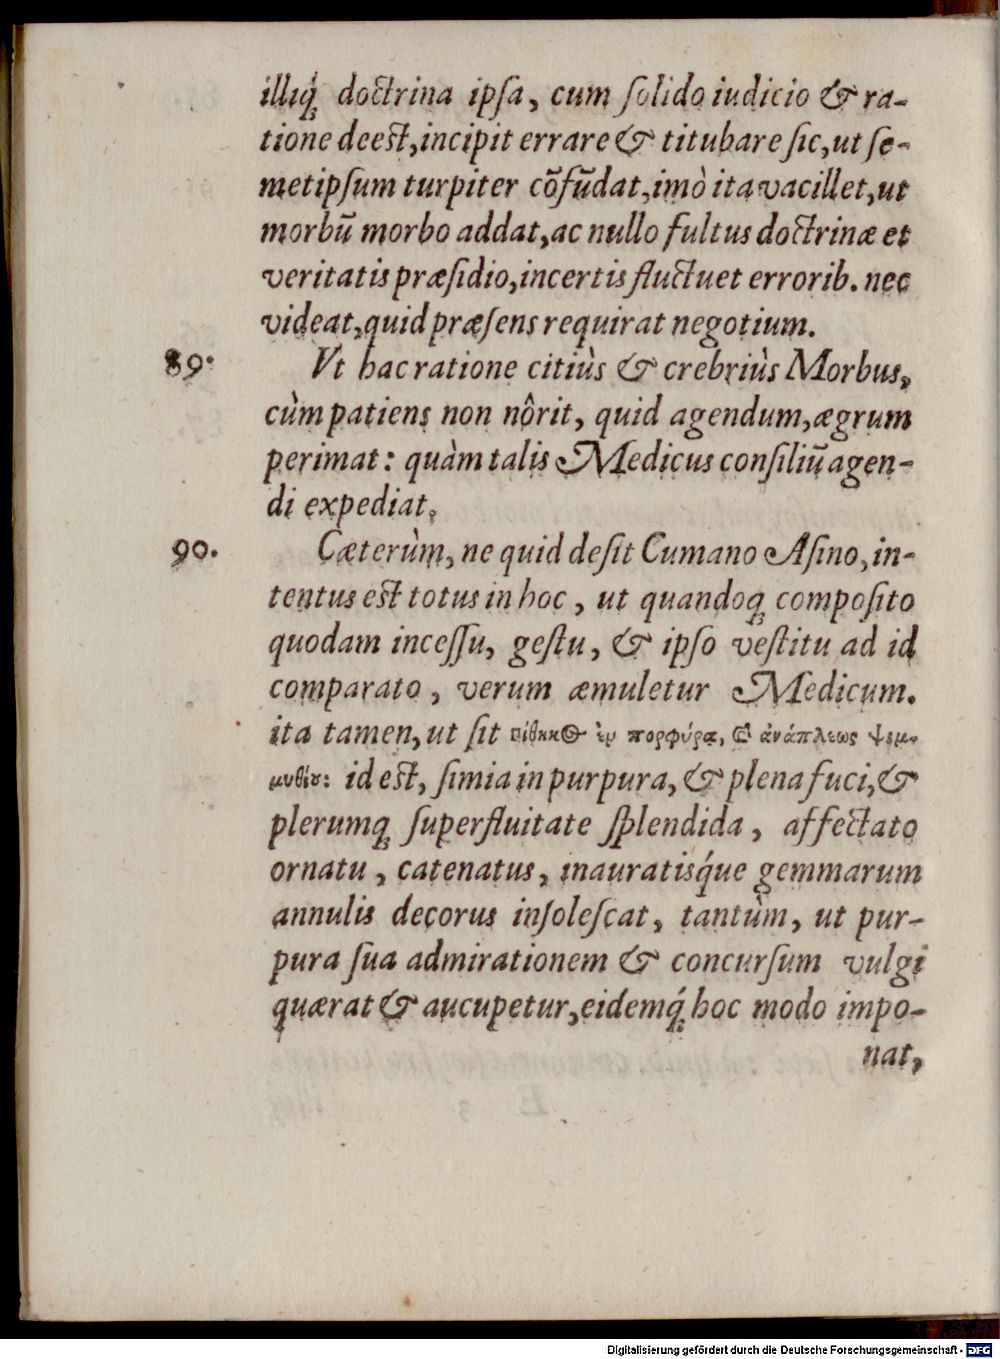 illiq́ꝫ doctrina ipſa, cum ſolido iudicio & ra-
tione deest, incipit errare & titubare ſic, ut ſe-
metipſum turpiter cõfũdat, imò ita vacillet, ut
morbũ morbo addat, ac nullo fultus doctrinæ et
veritatis præſidio, incertis fluctuet errorib. nec
videat, quid præſens requirat negotium.
89. Vt hac ratione citiùs & crebriùs Morbus,
cùm patiens non nôrit, quid agendum, ægrum
perimat: quàm talis Medicus conſiliũ agen-
di expediat.
90. Cæterùm, ne quid deſit Cumano Aſino, in-
tentus est totus in hoc, ut quandoqꝫ compoſito
quodam inceſſu, geſtu, & ipſo veſtitu ad id
comparato, verum æmuletur Medicum.
ita tamen, ut ſit πίθηκος ἐν πορφύρᾳ, καὶ ἀνάπλεως ψιμ-
μυθίου: id est, ſimia in purpura, & plena fuci, &
plerumqꝫ ſuperfluitate ſplendida, affectato
ornatu, catenatus, inauratisq́ue gemmarum
annulis decorus inſoleſcat, tantùm, ut pur-
pura ſua admirationem & concurſum vulgi
quærat & aucupetur, eidemq́ꝫ hoc modo impo-
nat,
Digitalisierung gefördert durch die Deutsche Forschungsgemeinschaft - DFG